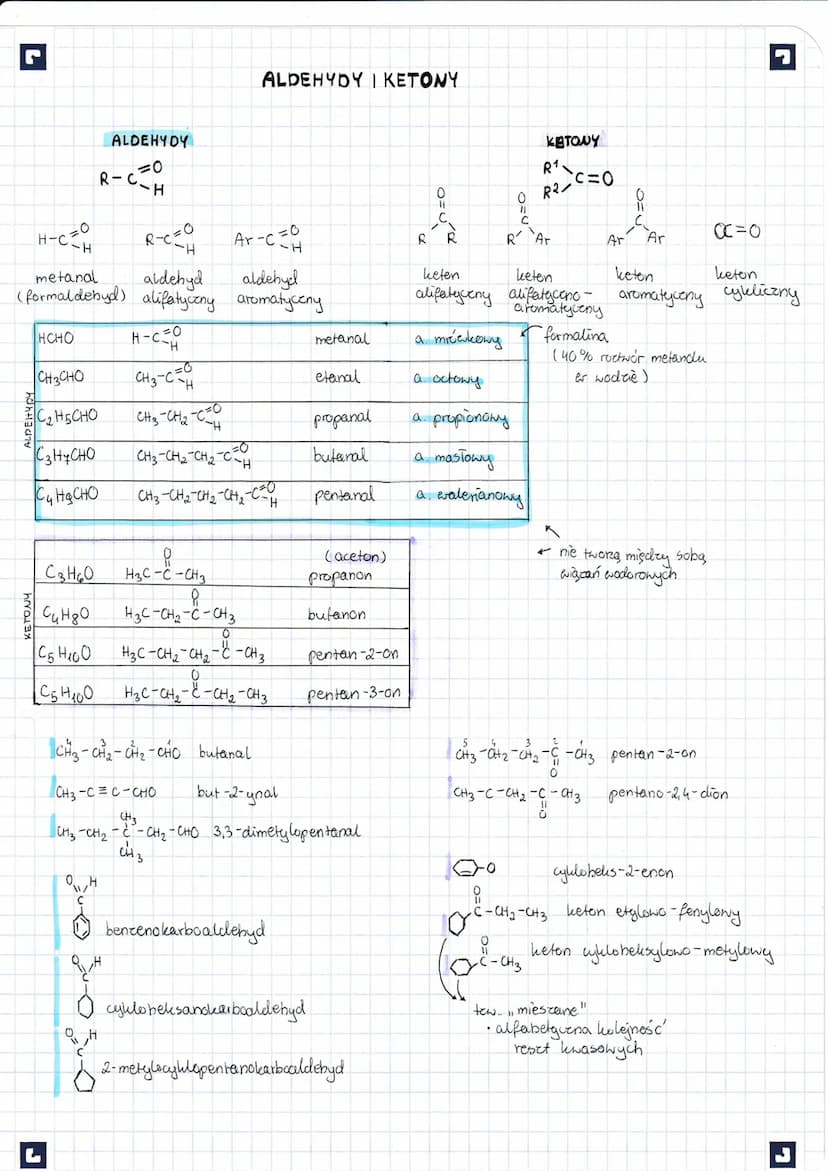 ALDEHYDY I KETONY
ALDEHYDY
R-C=O
-H
KETONY
R1
R2
C=O
H-C=O
-H
metanal
(formaldehyd)
R-C=O
-H
aldehyd
alifatyczny
Ar-C=O
-H
aldehyd
aromatyczny
O
C
R R
keton
alifatyczny
O
C
R Ar
keton
alifatyczno-
aromatyczny
O
C
Ar Ar
keton
aromatyczny
C=O
keton
cykliczny
ALDEHYDY
HCHO H-C=O metanal a. mrówkowy
H
CH3CHO CH3-C=O etanal a. octowy
H
C2H5CHO CH3-CH2-C=O propanal a. propionowy
H
C3H7CHO CH3-CH2-CH2-C=O butanal a. masłowy
H
C4H9CHO CH3-CH2-CH2-CH2-C=O pentanal a. walerianowy
H
formalina
(40% roztwór metanalu
w wodzie)
nie tworzą między sobą
wiązań wodorowych
KETONY
O (aceton)
C3H6O H3C-C-CH3 propanon
O
C4H8O H3C-CH2-C-CH3 butanon
O
C5H10O H3C-CH2-CH2-C-CH3 pentan-2-on
O
C5H10O H3C-CH2-C-CH2-CH3 pentan-3-on
4 3 2 1
CH3-CH2-CH2-CHO butanal
CH3-C≡C-CHO but-2-ynal
CH3
CH3-CH2-C-CH2-CHO 3,3-dimetylopentanal
CH3
O H
C
benzenokarboaldehyd
O H
C
cykloheksanokarboaldehyd
O H
C
2-metylocyklopentanokarboaldehyd
5 4 3 2 1
CH3-CH2-CH2-C-CH3 pentan-2-on
O
CH3-C-CH2-C-CH3 pentano-2,4-dion
O
=O cykloheks-2-enon
O
C-CH2-CH3 keton etylowo-fenylowy
O
C-CH3 keton cykloheksylowo-metylowy
tzw. „mieszane"
• alfabetyczna kolejność
reszt kwasowych